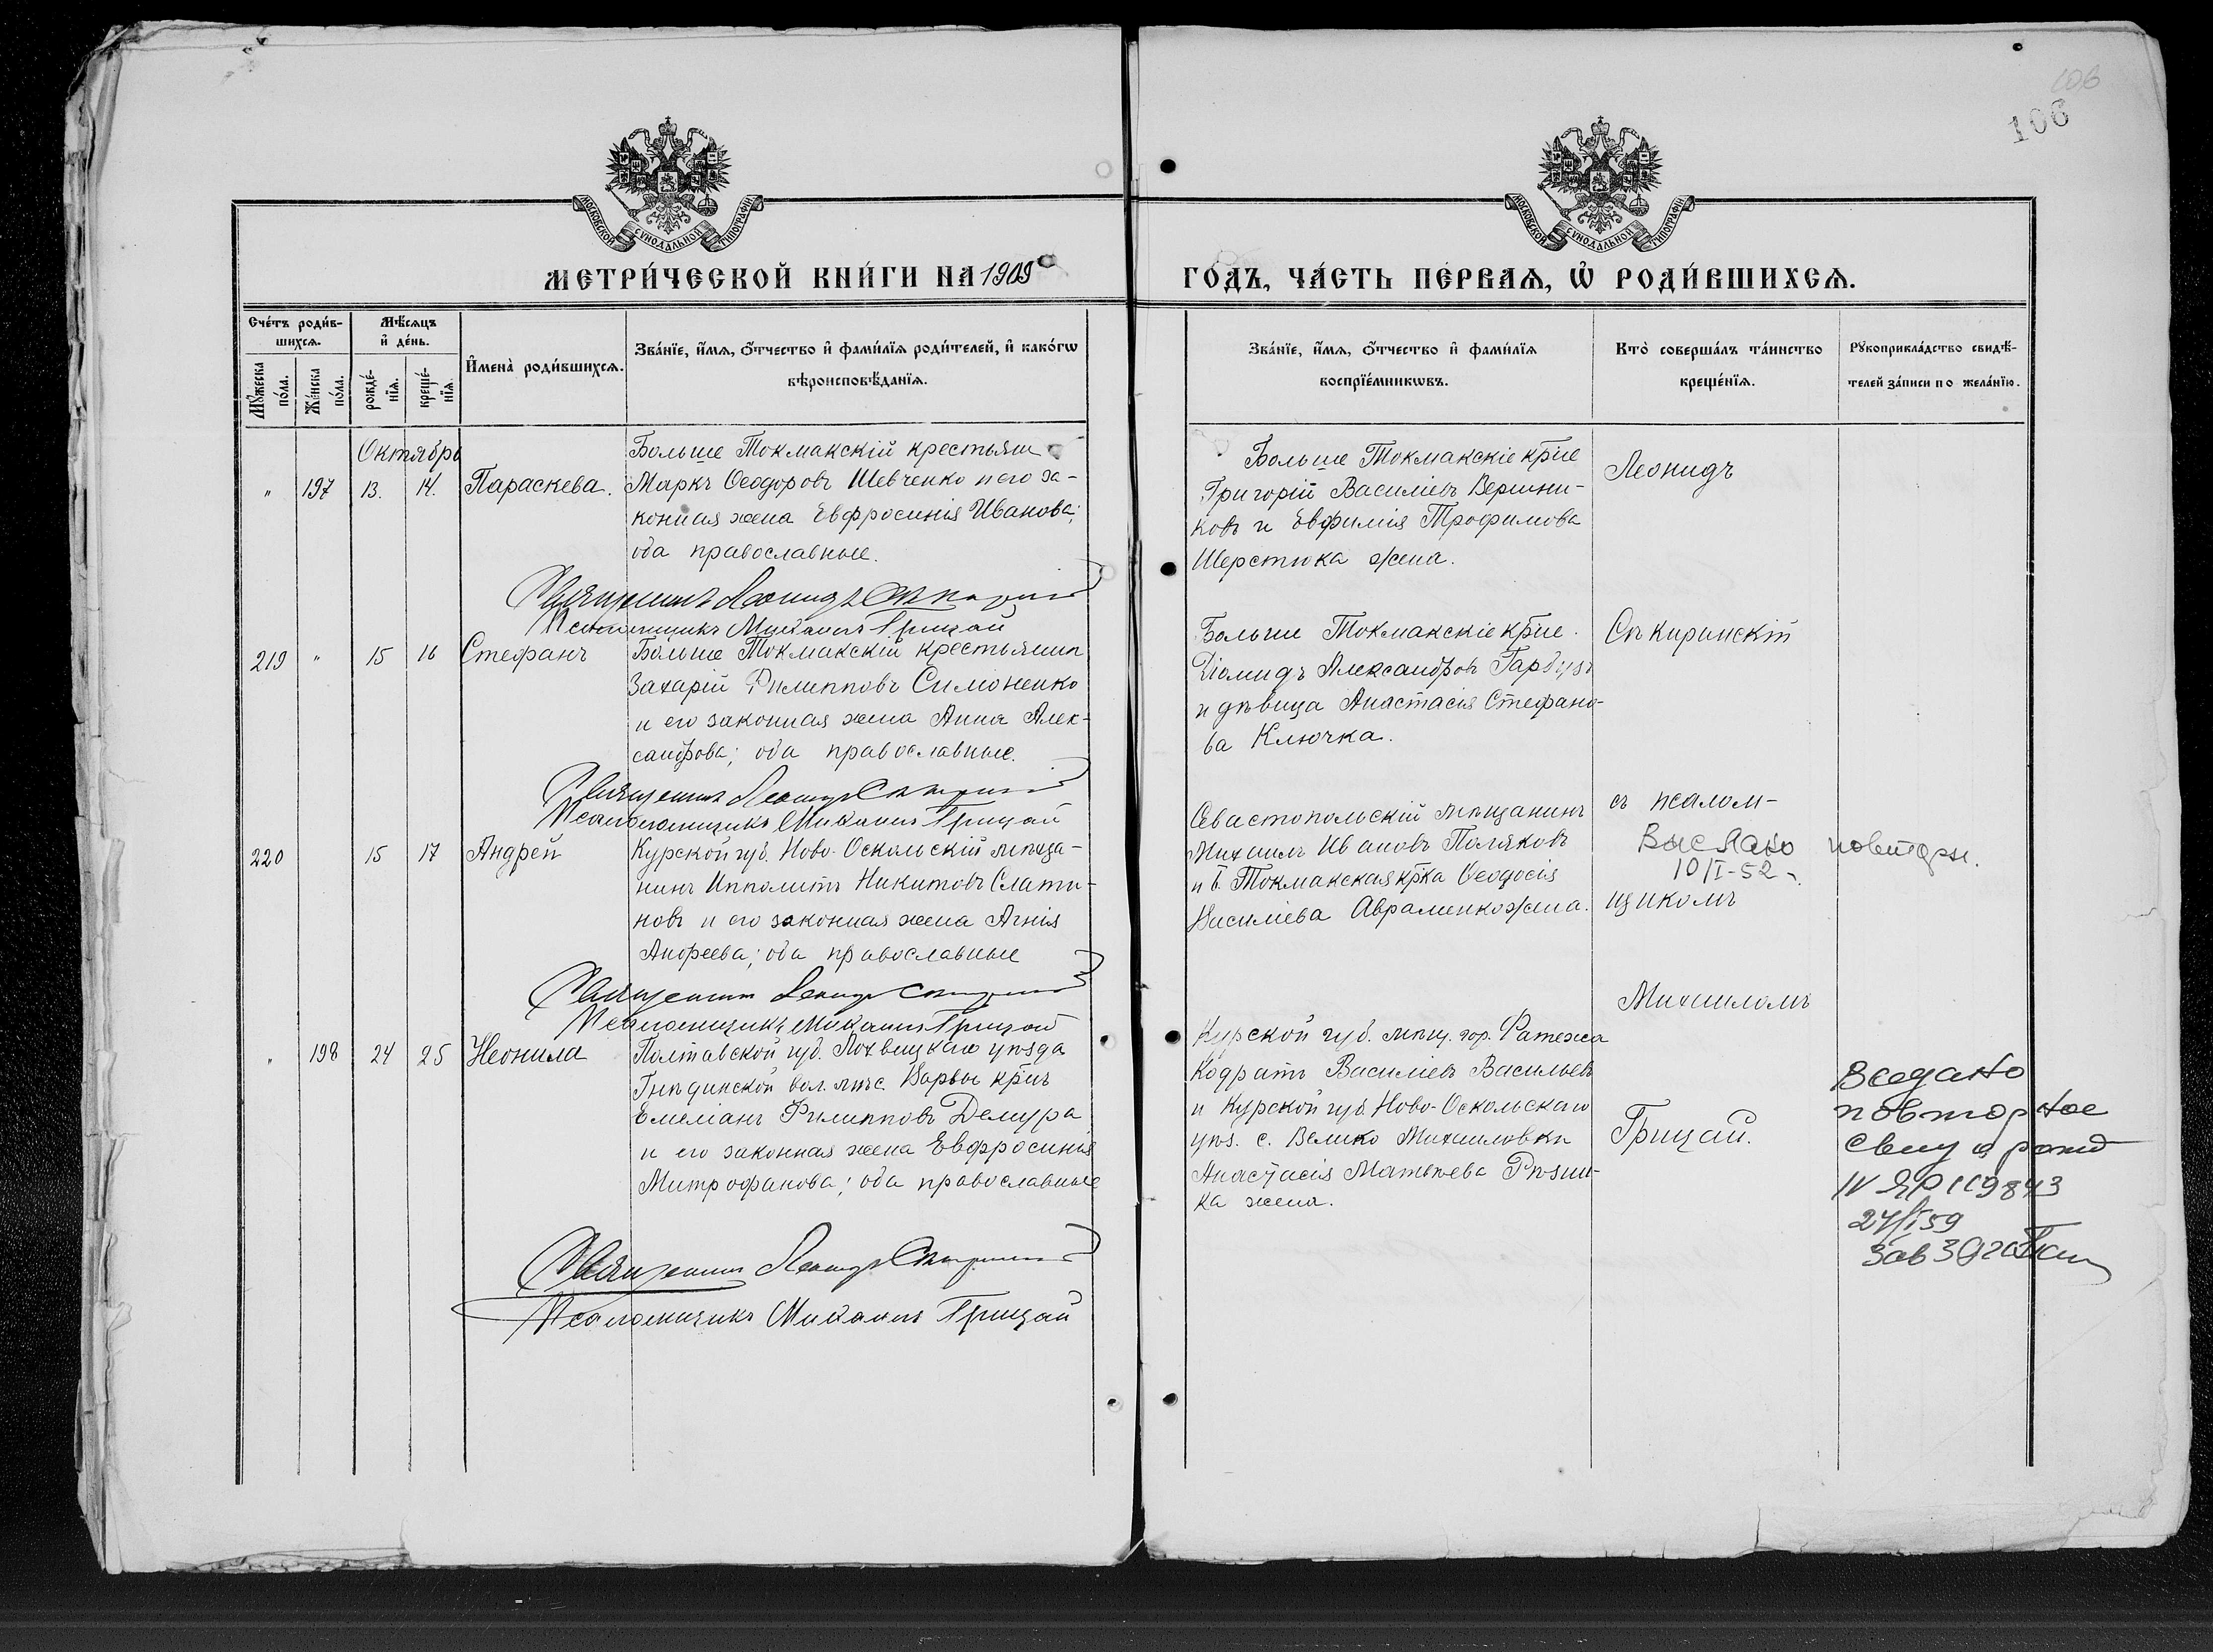 106
106
МОСКОВСКОЙ СѴНОДАЛЬНОЙ ТИПОГРАФІИ
МОСКОВСКОЙ СѴНОДАЛЬНОЙ ТИПОГРАФІИ
МЕТРИ́ЧЕСКОЙ КНИ́ГИ НА 1909
ГО́ДЪ, ЧА́СТЬ ПЕ́РВАѦ, Ѿ РОДИ́ВШИХСѦ.
Сче́тъ роди́в-
шихсѧ.
Мꙋ́жеска
по́ла.
Же́нска
по́ла.
Мѣ́сѧцъ
и҆ де́нь.
рожде́-
нїѧ.
креще́-
нїѧ.
И҆мена̀ роди́вшихсѧ.
Зва́нїе, и҆́мѧ, ѻ҆́тчество и҆ фами́лїѧ роди́телей, и҆ како́гѡ
вѣроисповѣ́данїѧ.
Зва́нїе, и҆́мѧ, ѻ҆́тчество и҆ фами́лїѧ
воспрїе́мникѡвъ.
Кто̀ соверша́лъ та́инство
креще́нїѧ.
Рꙋкоприкла́дство свидѣ́-
телей за́писи по жела́нїю.
Октябрь
" 197 13. 14. Параскева.
Больше Токмакскій крестьянин
Маркъ Ѳеодоровъ Шевченко и его за-
конная жена Евфросинія Иванова;
оба православные.
Священникъ Леонидъ Снкиринскій
Псаломщикъ Михаилъ Грицай
Больше Токмакскіе кр̃не
Григорій Василіевъ Вершни-
ковъ и Евфимія Трофимова
Шерстюка жена.
Леонидъ
219 " 15 16 Стефанъ
Больше Токмакскій крестьянин
Захарій Филипповъ Симоненко
и его законная жена Анна Алек-
сандрова; оба православные.
Священникъ Леонидъ
Псаломщикъ Михаилъ Грицай
Больше Токмакскіе кр̃не.
Діомидъ Александровъ Гарбузъ
и дѣвица Анастасія Стефано-
ва Ключка.
Снкиринскій
220 15 17 Андрей
Курской губ. Ново-Оскольскій мѣща-
нинъ Ипполитъ Никитовъ Слати-
новъ и его законная жена Агнія
Андреева; оба православные
Священникъ Леонидъ
Псаломщикъ Михаилъ Грицай
Севастопольскій мѣщанинъ
Михаилъ Ивановъ Поляковъ
и Б. Токмакская кр̃ка Ѳеодосія
Василіева Авраменко жена.
съ псалом-
Выслано повторн.
10/I-52
щикомъ
Михаиломъ
" 198 24 25 Неонила
Полтавской губ. Лохвицкаго уѣзда
Гнѣдинской вол. мѣс. Варвы кр̃нъ
Емеліанъ Филипповъ Демура
и его законная жена Евфросинія
Митрофанова; оба православные
Священникъ Леонидъ
Псаломщикъ Михаилъ Грицай
Курской губ. мѣщ. гор. Фатежа
Кодратъ Василіевъ Васильевъ
и Курской губ. Ново-Оскольскаго
уѣз. с. Велико Михаиловки
Анастасія Матвѣева Рѣзни-
ка жена.
Грицай.
Выдано
повторное
свид о рожд
IV ЯР 119843
24/I 59
Зав